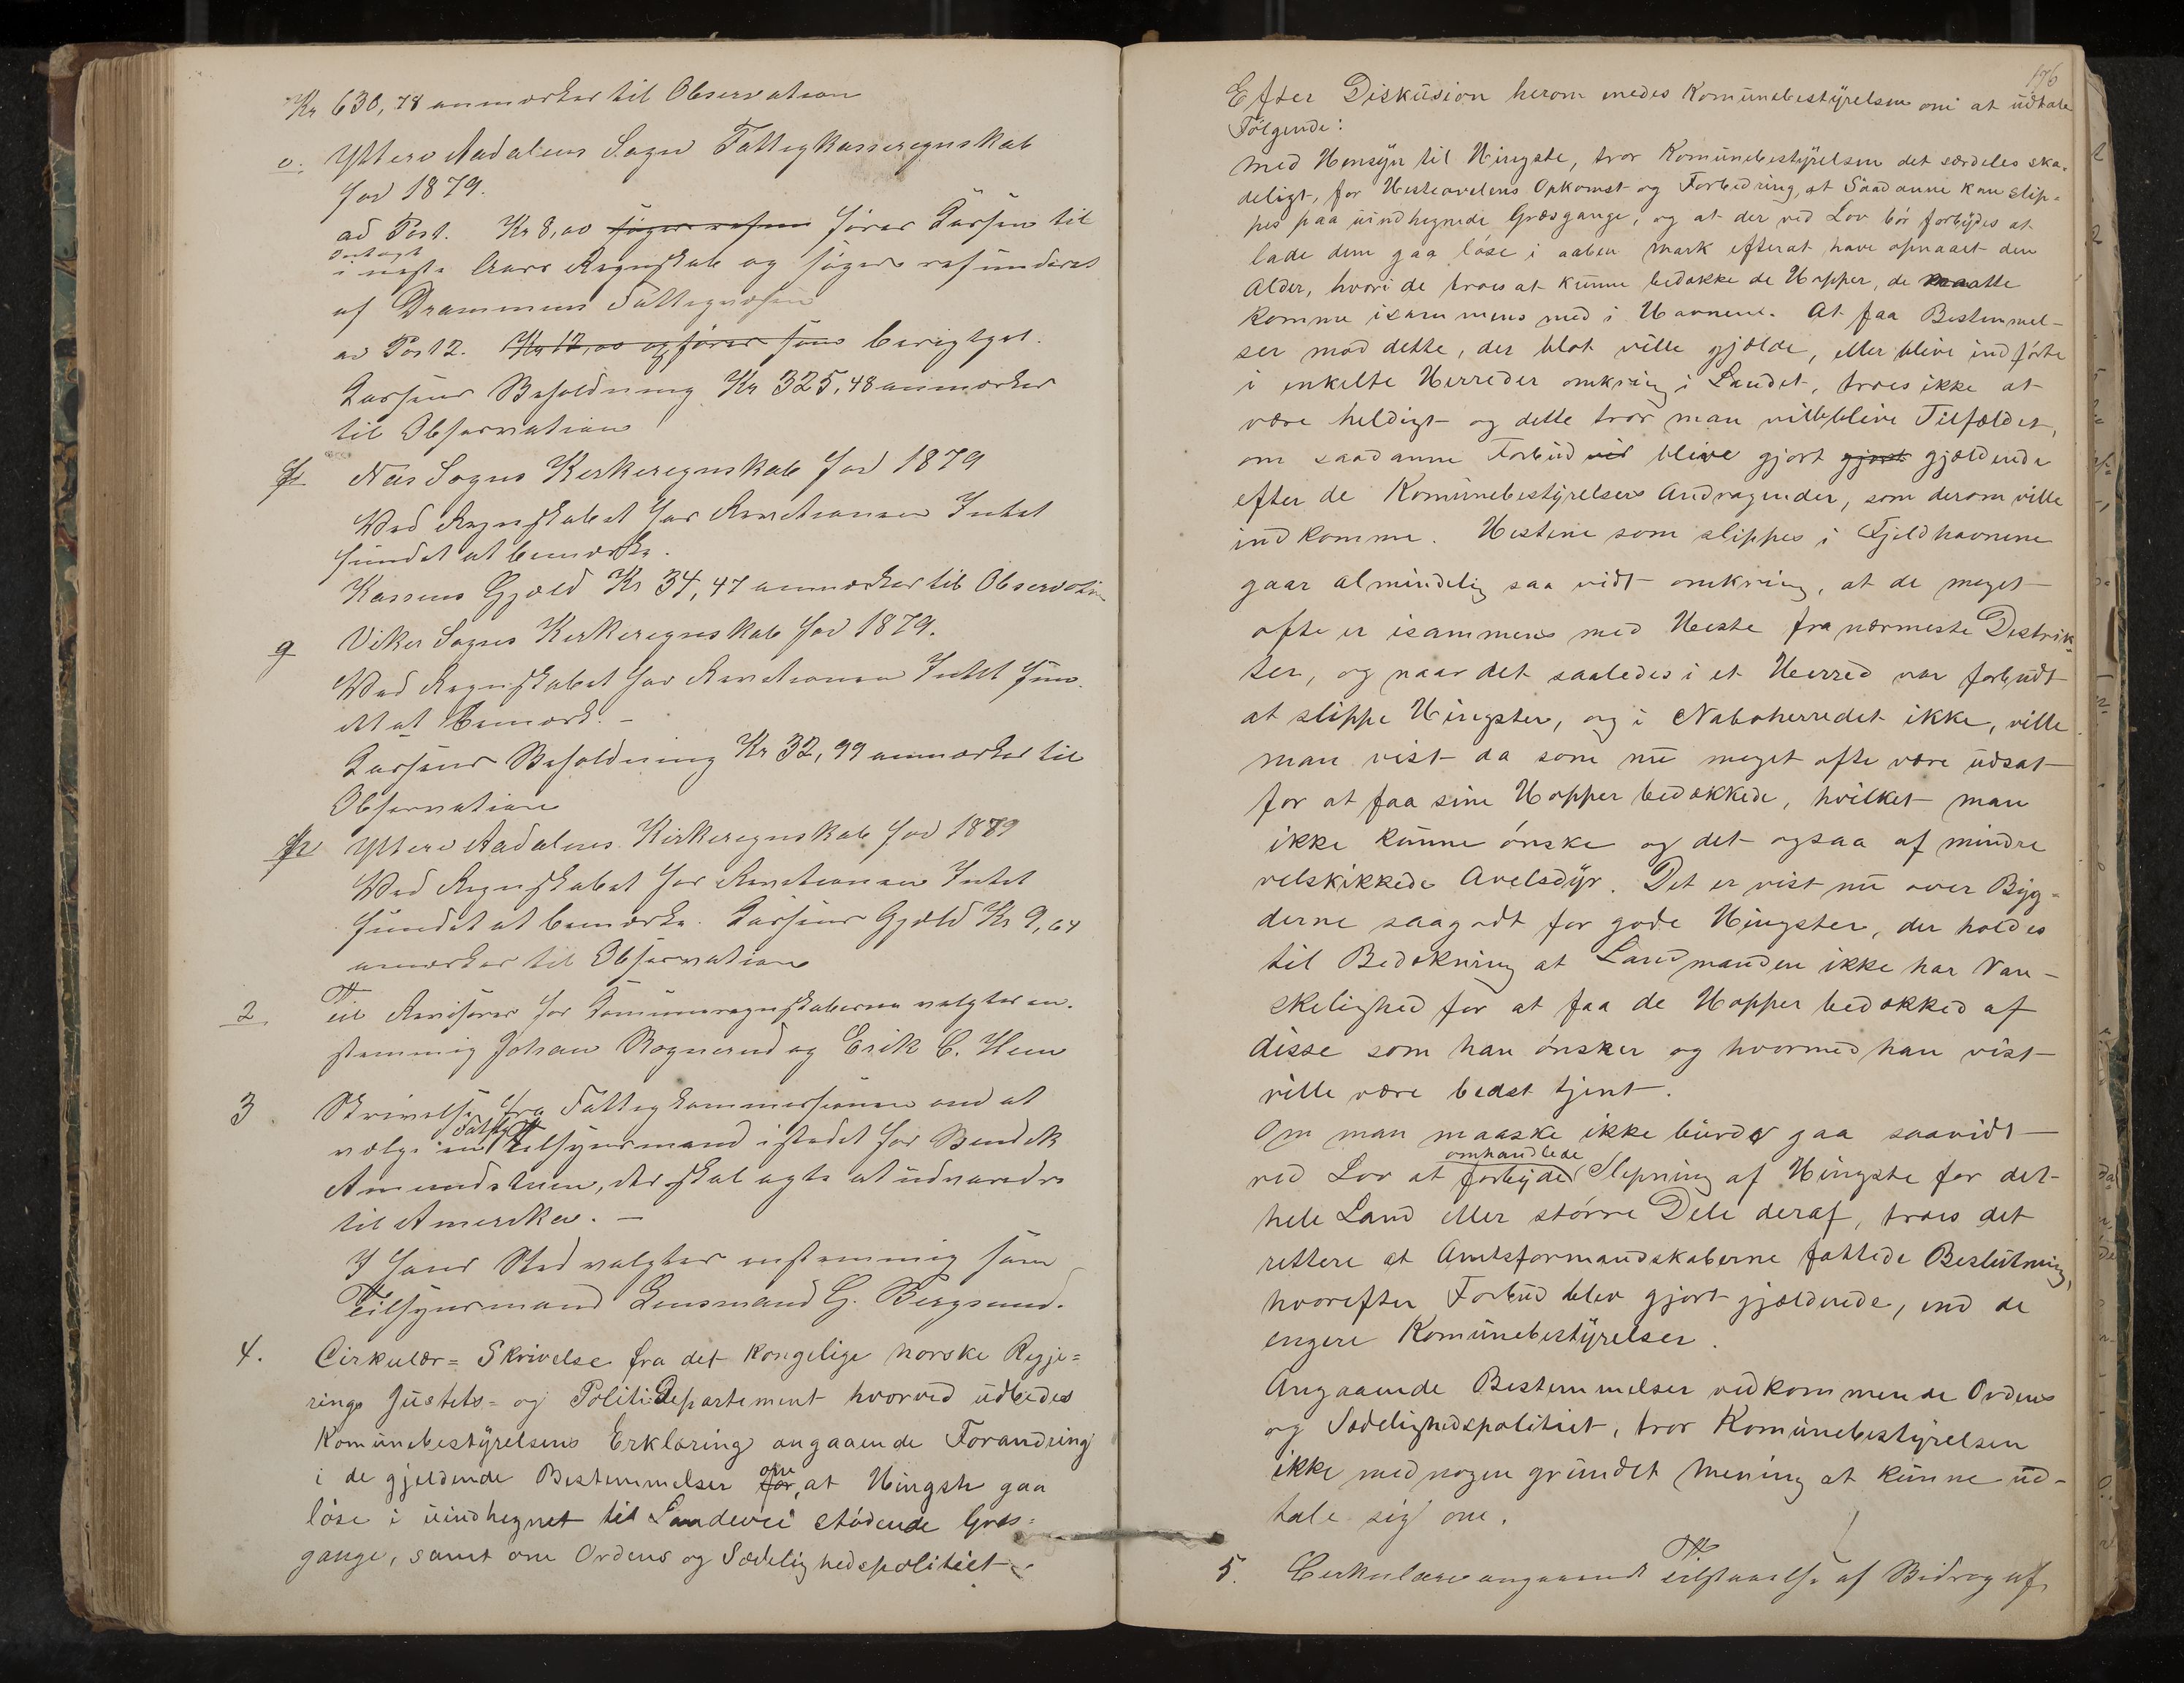 Kr 630,78 anmærkes til Observation
e. Yttere Aadalens Sogns Fattigkasseregnskab
for 1879.
ad Post. Kr 8,00 søges refun føres Kassen til
Indtægt
i næste Aars Regnskab og søges refunderet
af Drammens Fattigvæsen
ad Post 2. Kr 12,00 opføres som berigtget.
Kassens Beholdning Kr 325,48 anmærkes
til Observation
f Næs Sogns Kirkeregnskab for 1879
Ved Regnskabet har Revisionen Intet
fundet at bemærke.
Kassens Gjæld Kr 34,47 anmærkes til Observation
g Viker Sogns Kirkeregnskab for 1879.
Ved Regnskabet har Revisionen Intet fun-
det at bemærk. –
Kassens Beholdning Kr 32,99 anmærkes til
Observation
h Yttere Aadalens Kirkeregnskab for 1879
Ved Regnskabet har Revisionen Intet
fundet at bemærke. Kassens Gjæld Kr 9,64
anmærkes til Observation
2 Til Revisorer for Kommuneregnskaberne valgtes en-
stemmig Johan Rognerud og Erik C. Hem
3 Skrivelse fra Fattigkommissionen om at
Fattig
vælge en Tilsynsmand istedet for Bendik
Amundshren, der skal agte at udvandre
til Amerika. –
I hans Sted valgtes enstemmig som
Tilsynsmand Lensmand G. Bergsund.
4. Cirkulær= Skrivelse fra det kongelige norske Regje=
rings Justits= og PolitiDepartement hvorved udbedes
Komunebestyrelsens Erklæring angaaende Forandring
om
i de gjeldende Bestemmelser for, at Hingste gaa
løse i uindhegnet til Landevei stødende Græs=
gange, samt om Ordens og Sædelighedspolitiet
176
Efter Diskusion herom enedes Komunebestyrelsen om at udtale
Følgende:
Med Hensyn til Hingste, tror Komunebestyrelsen det særdeles ska-
deligt, for Hesteavelens Opkomst og Forbedring, at Saadanne kan slip-
pes paa uindhegnede Græsgange, og at der ved Lov bör forbydes at
lade dem gaa løse i aaben Mark efterat have opnaaet den
Alder, hvori de troes at kunne bedække de Hopper, de maatte
komme isammens med i Havnene. At faa Bestemmel-
ser mod dette, der blot ville gjælde, eller blive indførte
i enkelte Herreder omkring i Landet, troes ikke at
være heldigt og dette tror man ville blive Tilfældet,
om saadanne Forbud ved blive gjort gjort gjældende
efter de Komunebestyrelsers Andragender, som derom ville
indkomme. Hestene som slippes i Fjeldhavnene
gaar almindelig saa vidt omkring, at de meget
ofte er isammens med Heste fra nærmeste Distrik-
ter, og naar det saaledes i et Herred var forbudt
at slippe Hingster, og i Naboherredet ikke, ville
man vist da som nu meget ofte være udsat
for at faa sine Hopper bedækkede, hvilket man
ikke kunne ønske og det ogsaa af mindre
velskikkede Avelsdyr. Det er vist nu over Byg-
derne saagodt for gode Hingster, der holdes
til Bedækning at Landmanden ikke har Van-
skelighed for at faa de Hopper bedækked af
disse som han ønsker og hvormed han vist
ville være bedst tjent.
Om man maaske ikke burde gaa saavidt
omhandlede
ved Lov at forbyde Slepning af Hingste for det
hele Land eller större Dele deraf, troes det
rettere at Amtsformandskaberne fattede Beslutning,
hvorefter Forbud blev gjort gjældende, end de
engere Komunebestyrelser.
Angaaende Bestemmelser vedkommende Ordens
og Sædelighedspolitiet, tror Komunebestyrelsen
ikke med nogen grundet Mening at kunne ud-
tale sig om.
5. Cirkulære angaaende Tilstaaelse af Bidrag af